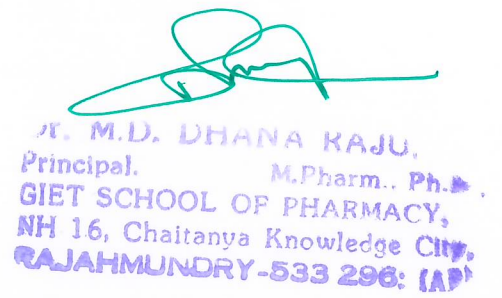 Dr. M.D. DHANA RAJU,
Principal. M.Pharm.. Ph.D.,
GIET SCHOOL OF PHARMACY,
NH 16, Chaitanya Knowledge City,
RAJAHMUNDRY-533 296: (AP)